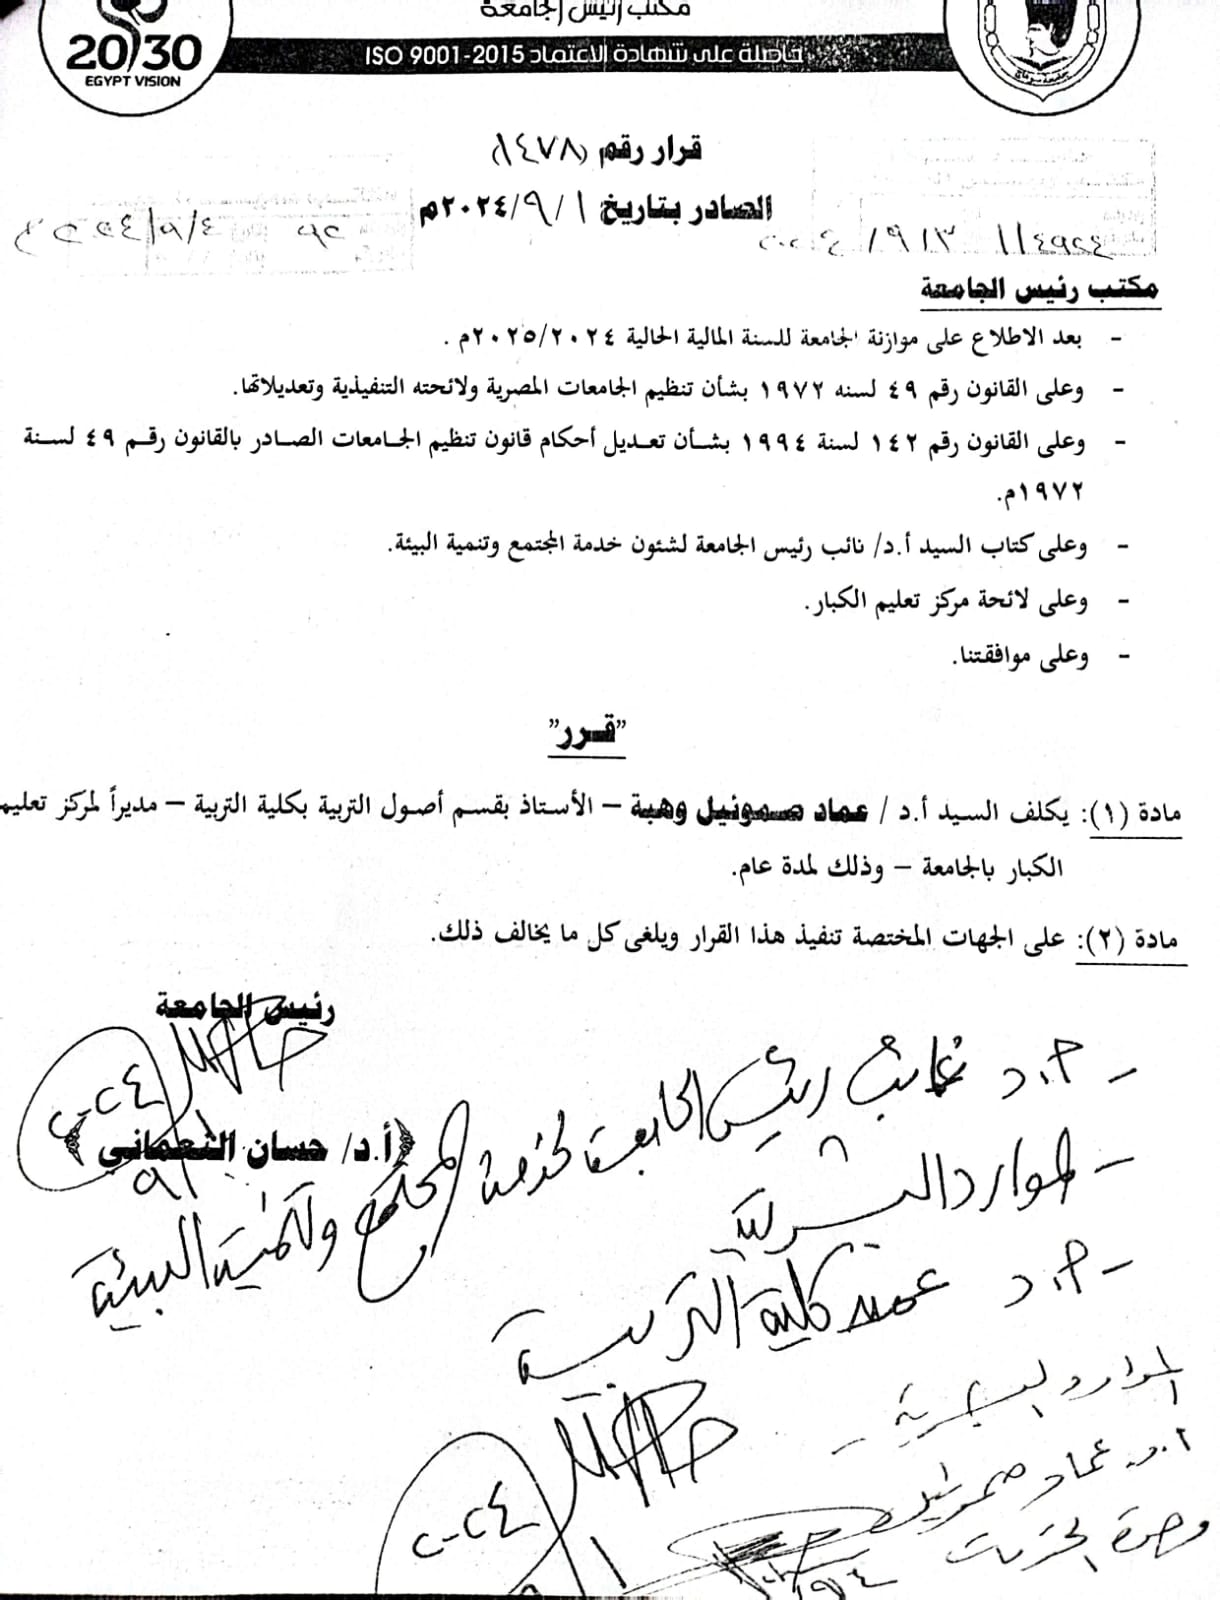 مكتب رئيس الجامعة
حاصلة على شهادة الاعتماد ISO 9001-2015
2030
EGYPT VISION
جامعة سوهاج
قرار رقم (١٤٧٨)
الصادر بتاريخ ١/ ٩/ ٢٠٢٤م
١١٤٩٢٤ ٣/ ٩/ ٢٠٢٤
٩٢ ٤/ ٩/ ٢٠٢٤ م
مكتب رئيس الجامعة
- بعد الاطلاع على موازنة الجامعة للسنة المالية الحالية ٢٠٢٥/٢٠٢٤م .
- وعلى القانون رقم ٤٩ لسنه ١٩٧٢ بشأن تنظيم الجامعات المصرية ولائحته التنفيذية وتعديلاتها.
- وعلى القانون رقم ١٤٢ لسنة ١٩٩٤ بشأن تعديل أحكام قانون تنظيم الجامعات الصادر بالقانون رقم ٤٩ لسنة
١٩٧٢م.
- وعلى كتاب السيد أ.د/ نائب رئيس الجامعة لشئون خدمة المجتمع وتنمية البيئة.
- وعلى لائحة مركز تعليم الكبار.
- وعلى موافقتنا.
"قرر"
مادة (١): يكلف السيد أ.د / عماد صموئيل وهبة – الأستاذ بقسم أصول التربية بكلية التربية – مديراً لمركز تعليم
الكبار بالجامعة – وذلك لمدة عام.
مادة (٢): على الجهات المختصة تنفيذ هذا القرار ويلغى كل ما يخالف ذلك.
رئيس الجامعة
٢٠٢٤
٩/١
(أ.د/ حسان النعماني)
- أ.د نائب رئيس الجامعة لخدمة المجتمع وتنمية البيئة
- الموارد البشرية
- أ.د عميد كلية التربية
٢٠٢٤
٩/١
الموارد البشرية -
أ.د. عماد صموئيل
وحدة